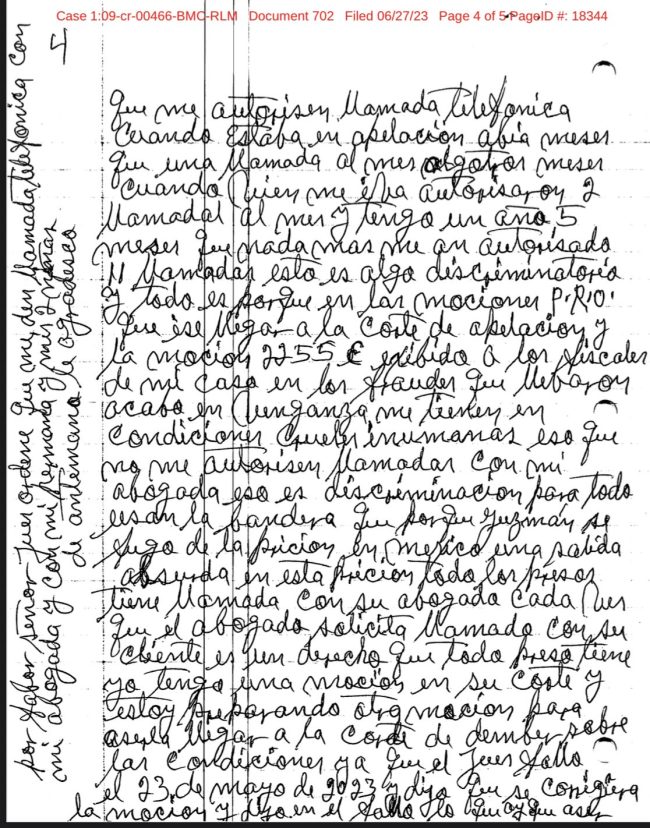 Case 1:09-cr-00466-BMC-RLM Document 702 Filed 06/27/23 Page 4 of 5 PageID #: 18344
4
que me autorisen llamada telefonica
Cuando Estaba en apelacion abia meses
que una llamada al mes algotros meses
Cuando bien me iba autorisaron 2
llamadas al mes y tengo un año 5
meses que nada mas me an autorisado
11 llamadas esto es algo discriminatorio
y todo es porque en las mociones P.R.O.
que ise llegar a la Corte de apelacion y
la mocion 2255 E exibido a los fiscales
de mi caso en los fraudes que llebaron
acabo en benganza me tienen en
condiciones crueles inumanas eso que
no me autorisen llamadas con mi
abogada eso es discriminacion para todo
usan la bandera que porque guzmán se
fugo de la pricion en mexico una salida
absurda en esta pricion todo los presos
tiene llamada con su abogado cada ves
que el abogado solicita llamada con su
cliente es un derecho que todo preso tiene
yo tengo una mocion en su Corte y
estoy preparando otra mocion para
aserla llegar a la corte de dember sobre
las condiciones ya que el Jues fallo
el 23 de mayo de 2023 y dijo que se corrigiera
la mocion y dijo en el fallo lo que ay que aser
por fabor señor Jues ordene que me den llamada telefonica con
mi abogada y con mi hermana y mis 2 niñas
de antemano le agradesco